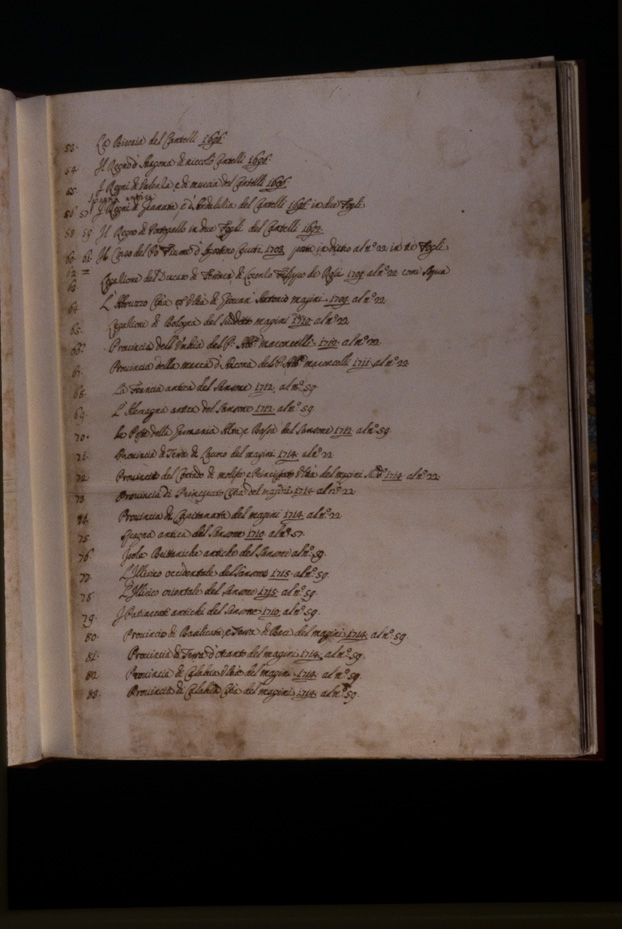 53. La Biscaia del Cantelli 1696.
54. Il Regno d'Aragona di Niccolò Cantelli 1696.
55. I Regni di Valenza, e di Murcia del Cantelli 1696.
Spagna antica
56 57 I Regni di Granata, e d'Andalulia del Cantelli 1696 in due Fogli.
58. 59. Il Regno di Portogallo in due Fogli del Cantelli 1692.
60. 61. Il Corso del Po Fiume d'Agostino 1703 in tre Fogli.
62 =
63. del Ducato di de Rossi 1709 al n.o 22 con
64. L'Abruzzo Citra et Ultra di Giovan Antonio Magini. 1709. al n.o 22
65. di Bologna del Suddetto Magini 1710 al n.o 22.
66. Provincia dell'Umbria del S. Abb.e 1712. al n.o 22
67. Provincia della Marca d'Ancona del S. Abb.e 1711. al n.o 22
68. La Francia antica del Sansone 1712. al n.o 59
69. L'Alemagna antica del Sansone 1712. al n.o 59.
70. della Germania Alta, e Bassa del Sansone 1712. al n.o 59.
71. Provincia di Terra di Lavoro del Magini 1714. al n.o 22
72. Provincie del Contado di Molise, e Principato Ultra del Magini 1714. al n.o 22.
73. Provincia di Principato Citra del Magini 1714 al n.o 22.
74. Provincia di Capitanata del Magini 1714. al n.o 22.
75. antica del Sansone 1710. al n.o 57.
76. Isole Britaniche antiche del Sansone al n.o 59.
77. L'Illirico occidentale del Sansone 1715. al n.o 59.
78. L'Illirico orientale del Sansone 1715. al n.o 59.
79. I Patriarcati antichi del Sansone 1710. al n.o 59.
80. Provincie di Basilicata, e Terra di Bari del Magini 1714. al n.o 59.
81. Provincia di Terra d'Otranto del Magini 1714. al n.o 59.
82. Provincia di Calabria Ultra del Magini 1714. al n.o 59.
83. Provincia di Calabria Citra del Magini 1714. al n.o 59.